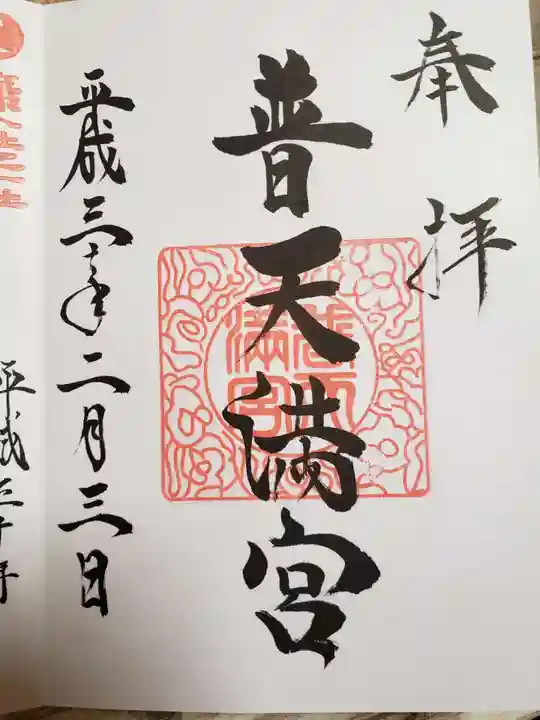 奉拝
普天満宮
平成三十年二月三日
平成三十年